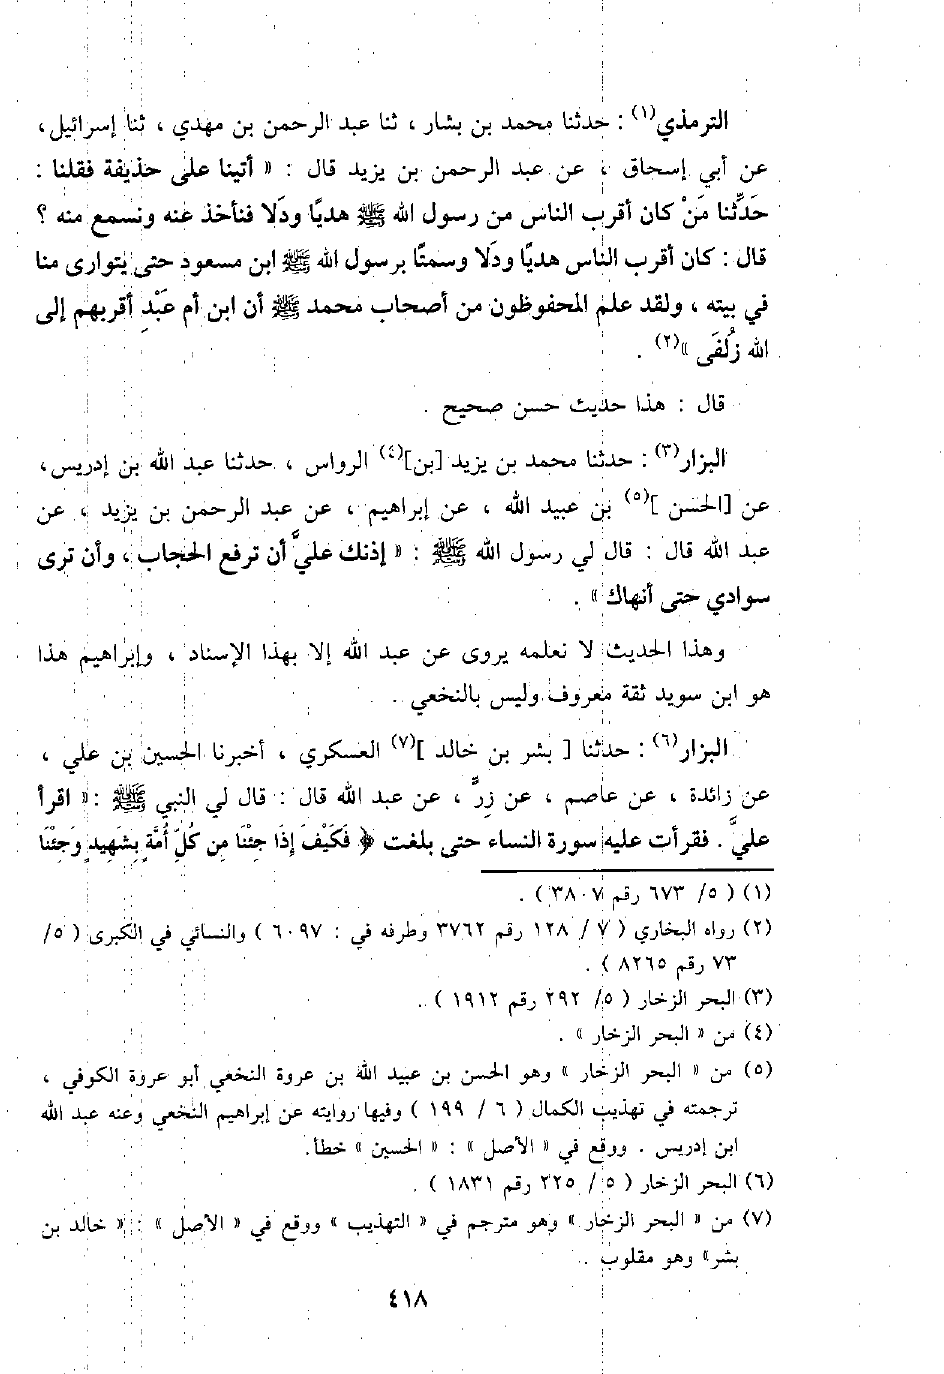 الترمذي(١) : حدثنا محمد بن بشار ، ثنا عبد الرحمن بن مهدي ، ثنا إسرائيل،
عن أبي إسحاق ، عن عبد الرحمن بن يزيد قال : « أتينا على حذيفة فقلنا :
حَدِّثنا مَنْ كان أقرب الناس من رسول الله ﷺ هديًا ودَلا فنأخذ عنه ونسمع منه ؟
قال : كان أقرب الناس هديًا ودَلا وسمتًا برسول الله ﷺ ابن مسعود حتى يتوارى منا
في بيته ، ولقد علم المحفوظون من أصحاب محمد ﷺ أن ابن أم عَبْدٍ أقربهم إلى
الله زُلْفَى »(٢) .
قال : هذا حديث حسن صحيح .
البزار(٣) : حدثنا محمد بن يزيد [بن](٤) الرواس ، حدثنا عبد الله بن إدريس،
عن [الحسن ](٥) بن عبيد الله ، عن إبراهيم ، عن عبد الرحمن بن يزيد ، عن
عبد الله قال : قال لي رسول الله ﷺ : « إذنك عليَّ أن ترفع الحجاب ، وأن ترى
سوادي حتى أنهاك » .
وهذا الحديث لا نعلمه يروى عن عبد الله إلا بهذا الإسناد ، وإبراهيم هذا
هو ابن سويد ثقة معروف وليس بالنخعي .
البزار(٦) : حدثنا [ بشر بن خالد ](٧) العسكري ، أخبرنا الحسين بن علي ،
عن زائدة ، عن عاصم ، عن زِرٍّ ، عن عبد الله قال : قال لي النبي ﷺ : « اقرأ
عليَّ . فقرأت عليه سورة النساء حتى بلغت ﴿ فَكَيْفَ إِذَا جِئْنَا مِن كُلِّ أُمَّةٍ بِشَهِيدٍ وَجِئْنَا
(١) ( ٥/ ٦٧٣ رقم ٣٨٠٧ ) .
(٢) رواه البخاري ( ٧ / ١٢٨ رقم ٣٧٦٢ وطرفه في : ٦٠٩٧ ) والنسائي في الكبرى ( ٥/
٧٣ رقم ٨٢٦٥ ) .
(٣) البحر الزخار ( ٥/ ٢٩٢ رقم ١٩١٢ ) .
(٤) من « البحر الزخار » .
(٥) من « البحر الزخار » وهو الحسن بن عبيد الله بن عروة النخعي أبو عروة الكوفي ،
ترجمته في تهذيب الكمال ( ٦ / ١٩٩ ) وفيها روايته عن إبراهيم النخعي وعنه عبد الله
ابن إدريس . ووقع في « الأصل » : « الحسين » خطأ.
(٦) البحر الزخار ( ٥ / ٢٢٥ رقم ١٨٣١ ) .
(٧) من « البحر الزخار » وهو مترجم في « التهذيب » ووقع في « الأصل » : « خالد بن
بشر» وهو مقلوب .
٤١٨